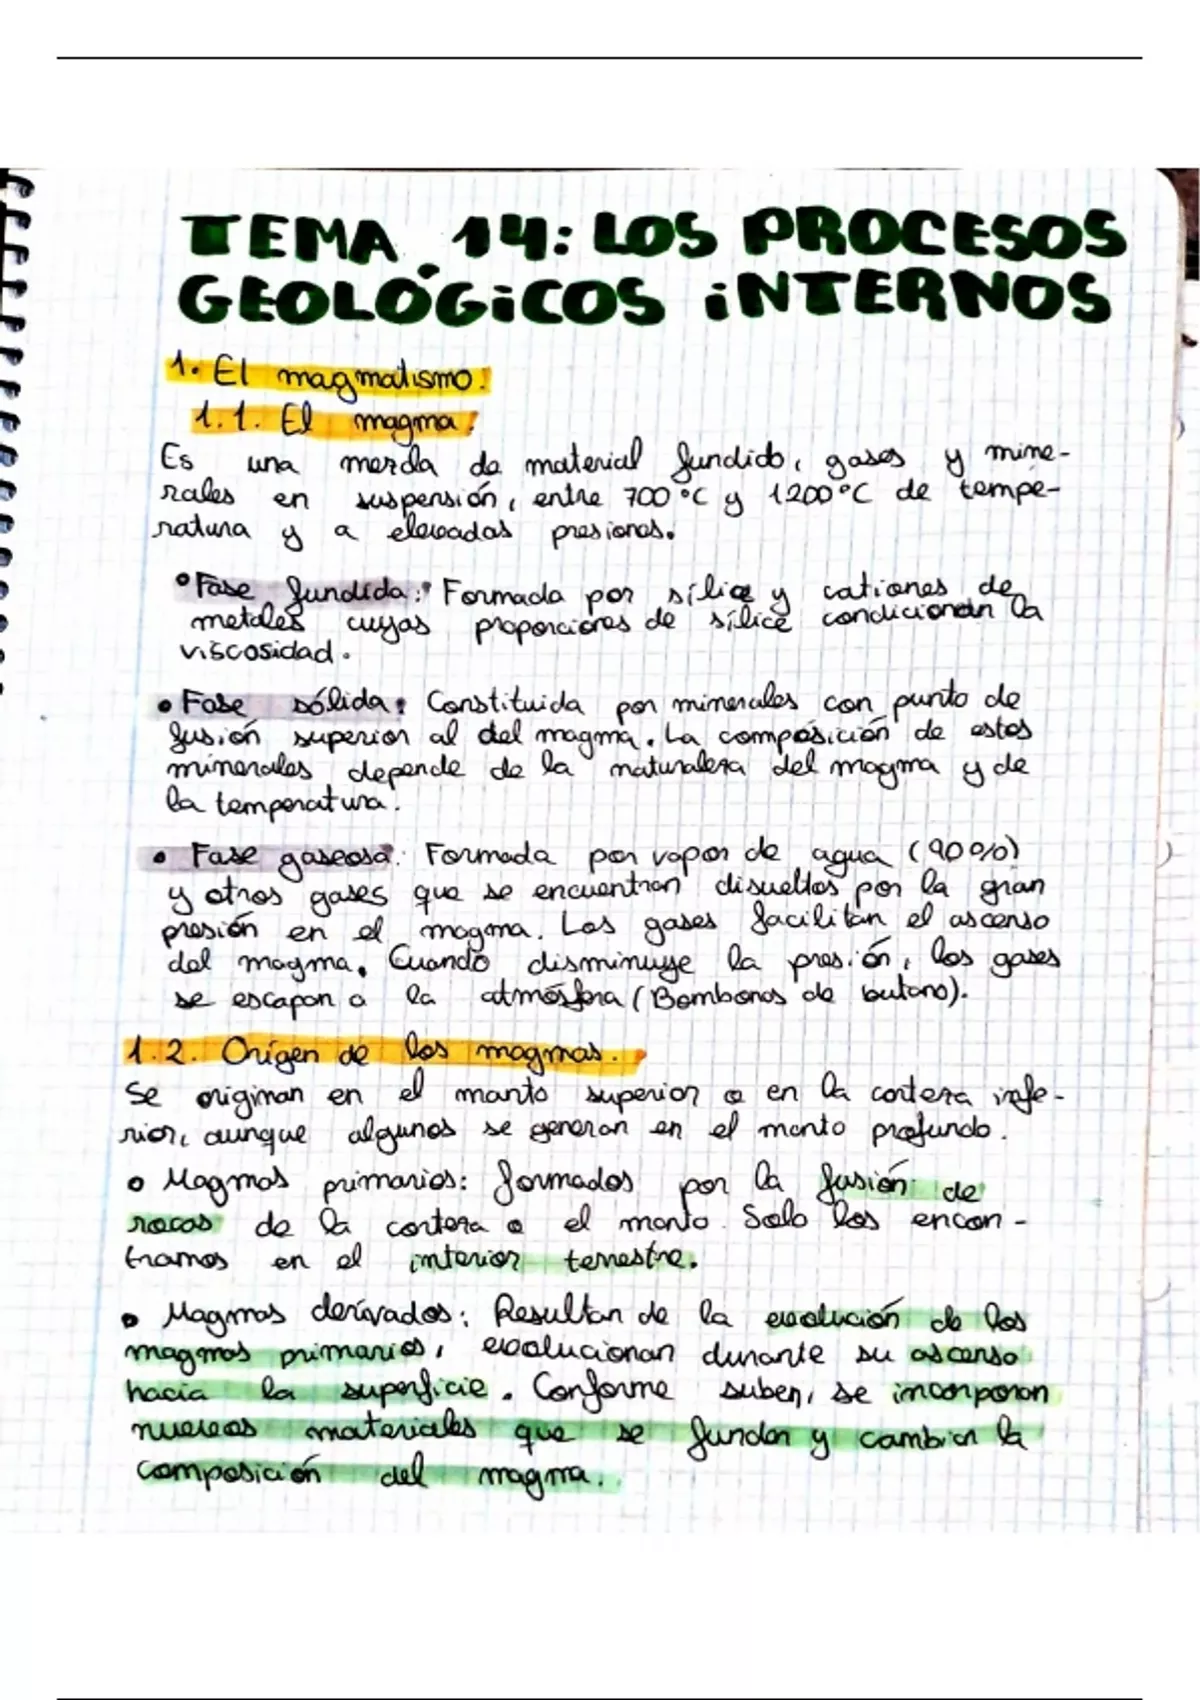 TEMA 14: LOS PROCESOS
GEOLÓGICOS INTERNOS
1. El magmatismo.
1.1. El magma.
Es una mezcla de material fundido, gases y mine-
rales en suspensión, entre 700 ºC y 1200 ºC de tempe-
ratura y a elevadas presiones.
• Fase fundida: Formada por sílice y cationes de
metales cuyas proporciones de sílice condicionan la
viscosidad.
• Fase sólida: Constituida por minerales con punto de
fusión superior al del magma. La composición de estos
minerales depende de la naturaleza del magma y de
la temperatura.
• Fase gaseosa: Formada por vapor de agua (90%)
y otros gases que se encuentran disueltos por la gran
presión en el magma. Los gases facilitan el ascenso
del magma. Cuando disminuye la presión, los gases
se escapan a la atmósfera (Bombonas de butano).
1.2. Orígen de los magmas.
Se originan en el manto superior o en la corteza infe-
rior, aunque algunos se generan en el manto profundo.
• Magmas primarios: formados por la fusión de
rocas de la corteza o el manto. Solo los encon-
tramos en el interior terrestre.
• Magmas derivados: Resultan de la evolución de los
magmas primarios, evolucionan durante su ascenso
hacia la superficie. Conforme suben, se incorporan
nuevos materiales que se funden y cambian la
composición del magma.